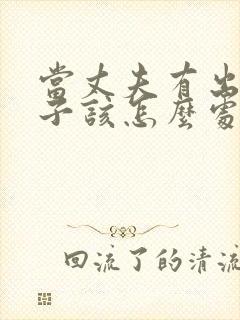 當丈夫有出
子該怎麼處
回流了的清流